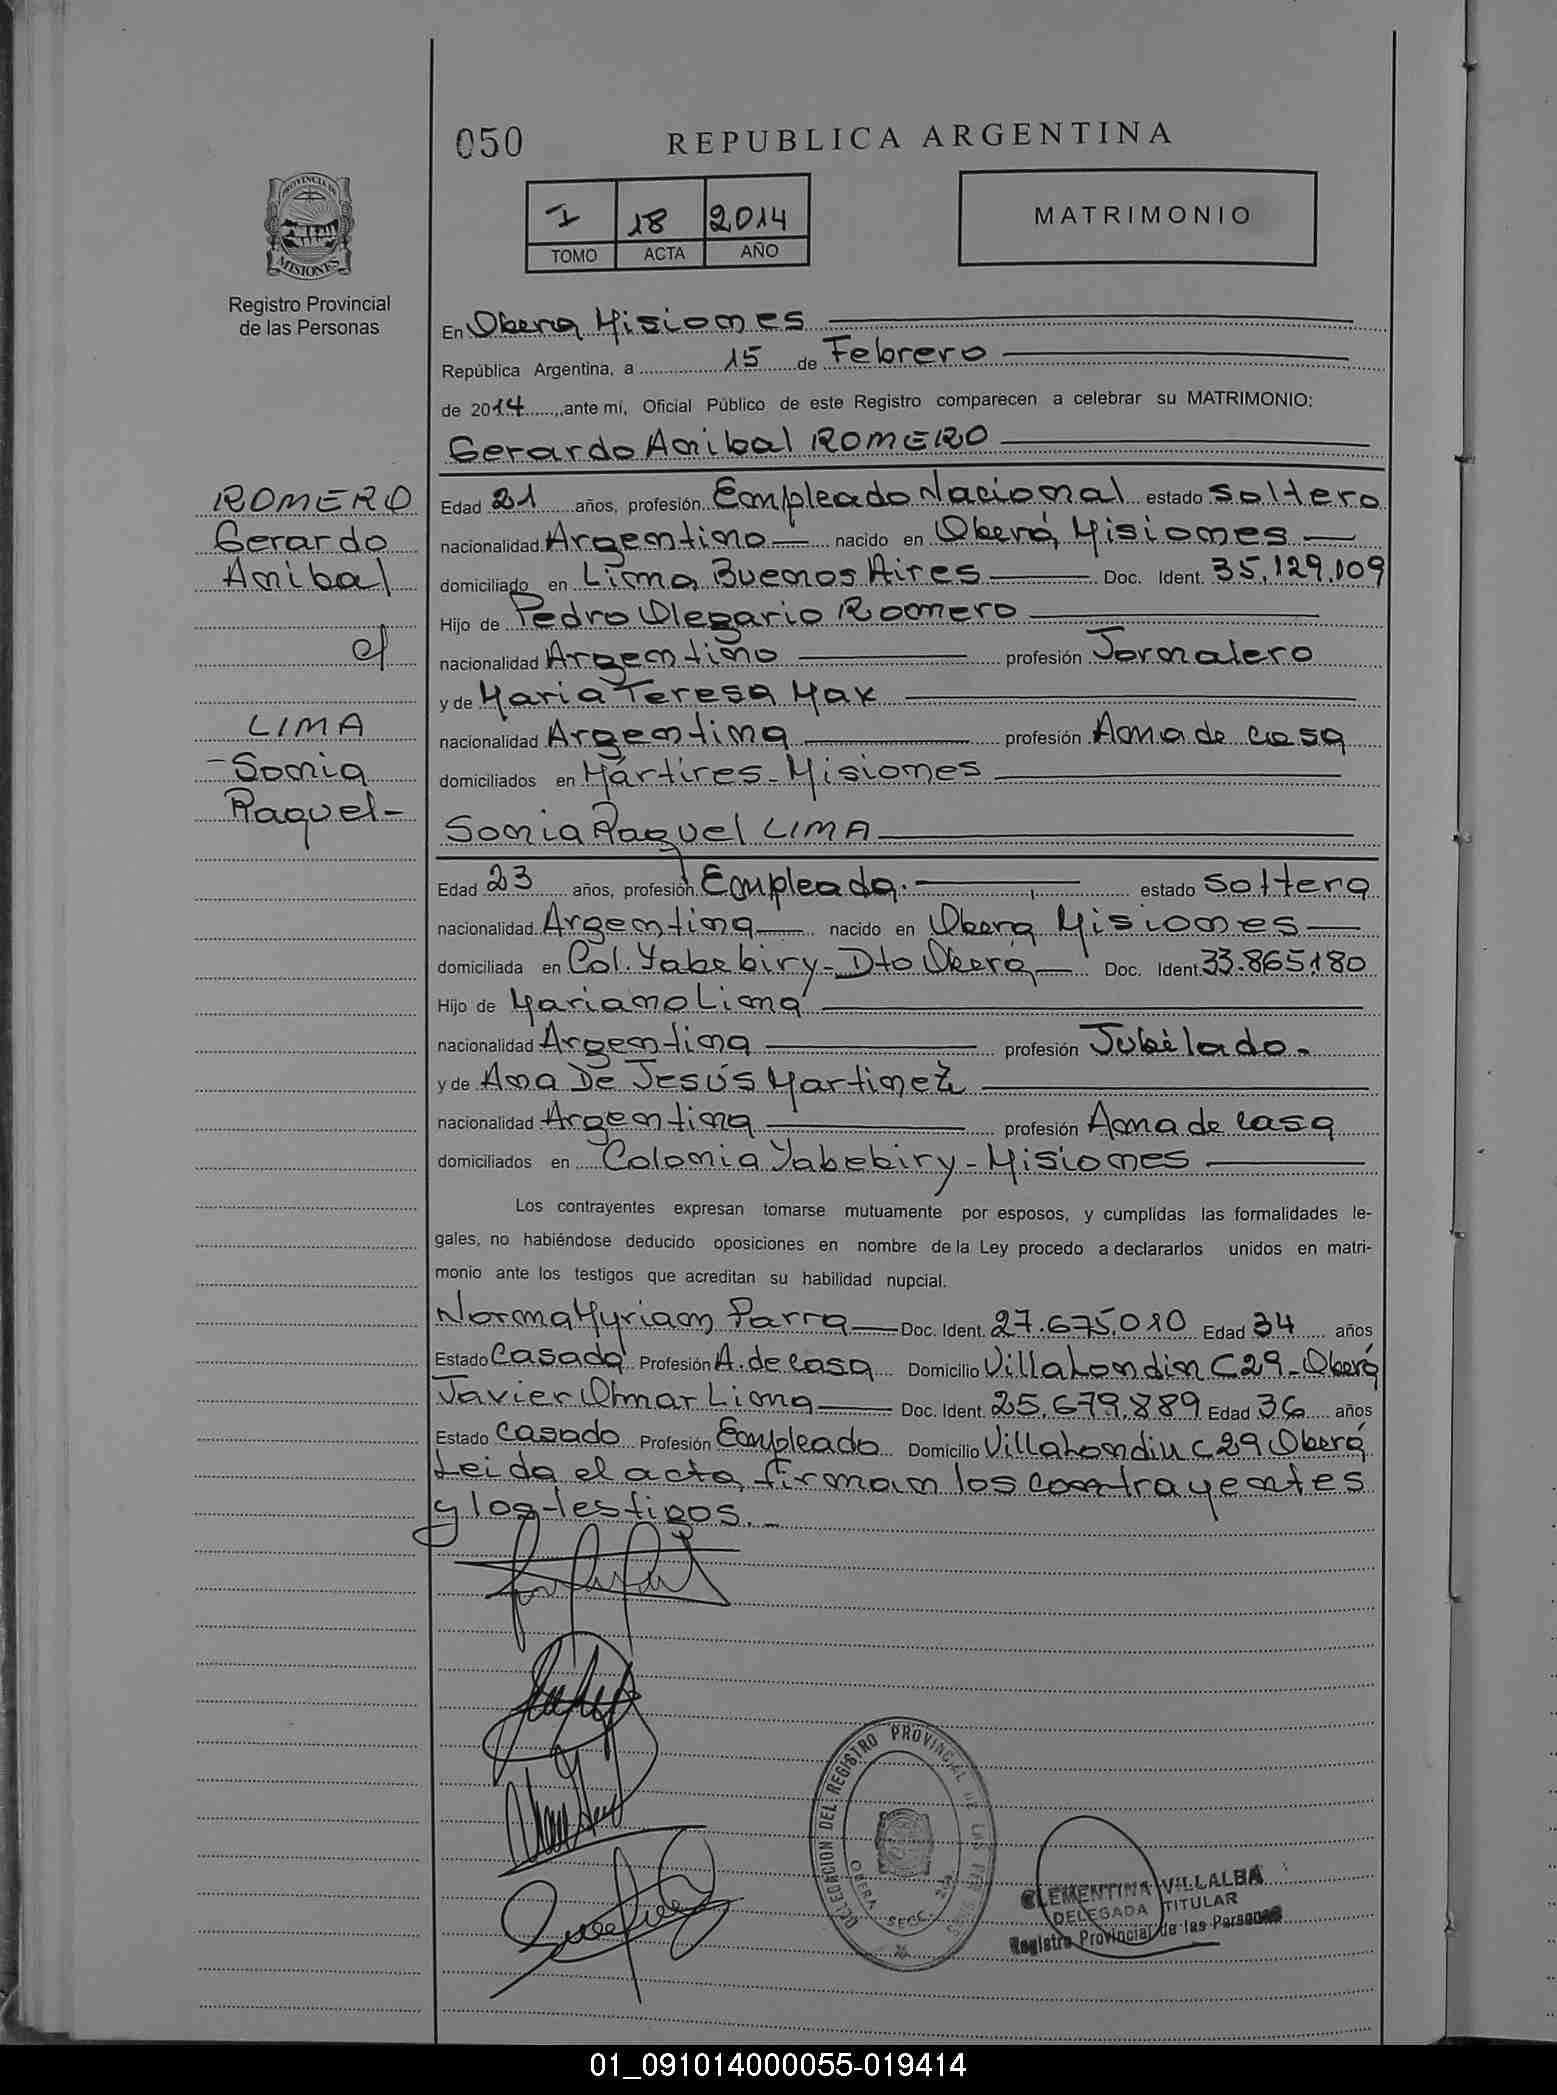 050
REPUBLICA ARGENTINA
PROVINCIA DE
MISIONES
I 18 2014
TOMO ACTA AÑO
MATRIMONIO
Registro Provincial
de las Personas
En Obera Misiones
República Argentina, a 15 de Febrero
de 2014, ante mí, Oficial Público de este Registro comparecen a celebrar su MATRIMONIO:
Gerardo Anibal ROMERO
ROMERO
Gerardo
Anibal
Edad 21 años, profesión Empleado Nacional estado soltero
nacionalidad Argentino nacido en Oberá, Misiones
domiciliado en Lima, Buenos Aires Doc. Ident. 35.129.109
Hijo de Pedro Olegario Romero
nacionalidad Argentino profesión Jornalero
y de Maria Teresa Max
LIMA
-Sonia
Raquel-
nacionalidad Argentina profesión Ama de casa
domiciliados en Mártires-Misiones
Sonia Raquel LIMA
Edad 23 años, profesión Empleada. estado soltera
nacionalidad Argentina nacido en Obera Misiones
domiciliada en Col. Yabebiry-Dto Oberá Doc. Ident. 33.865180
Hijo de Mariano Lima
nacionalidad Argentina profesión Jubilado.
y de Ana De Jesús Martinez
nacionalidad Argentina profesión Ama de casa
domiciliados en Colonia Yabebiry-Misiones
Los contrayentes expresan tomarse mutuamente por esposos, y cumplidas las formalidades le-
gales, no habiéndose deducido oposiciones en nombre de la Ley procedo a declararlos unidos en matri-
monio ante los testigos que acreditan su habilidad nupcial.
Norma Myriam Parra Doc. Ident. 27.675.010 Edad 34 años
Estado Casada Profesión A. de casa Domicilio C29-Oberá
Javier Omar Lima Doc. Ident. 25.679.889 Edad 36 años
Estado Casado Profesión Empleado Domicilio C29 Oberá
Leida el acta, firman los contrayentes
y los testigos.-
DELEGACION DEL REGISTRO PROVINCIAL DE LAS PERSONAS
OBERA SECC. 2da
CLEMENTINA VILLALBA
DELEGADA TITULAR
Registro Provincial de las Personas
01_091014000055-019414